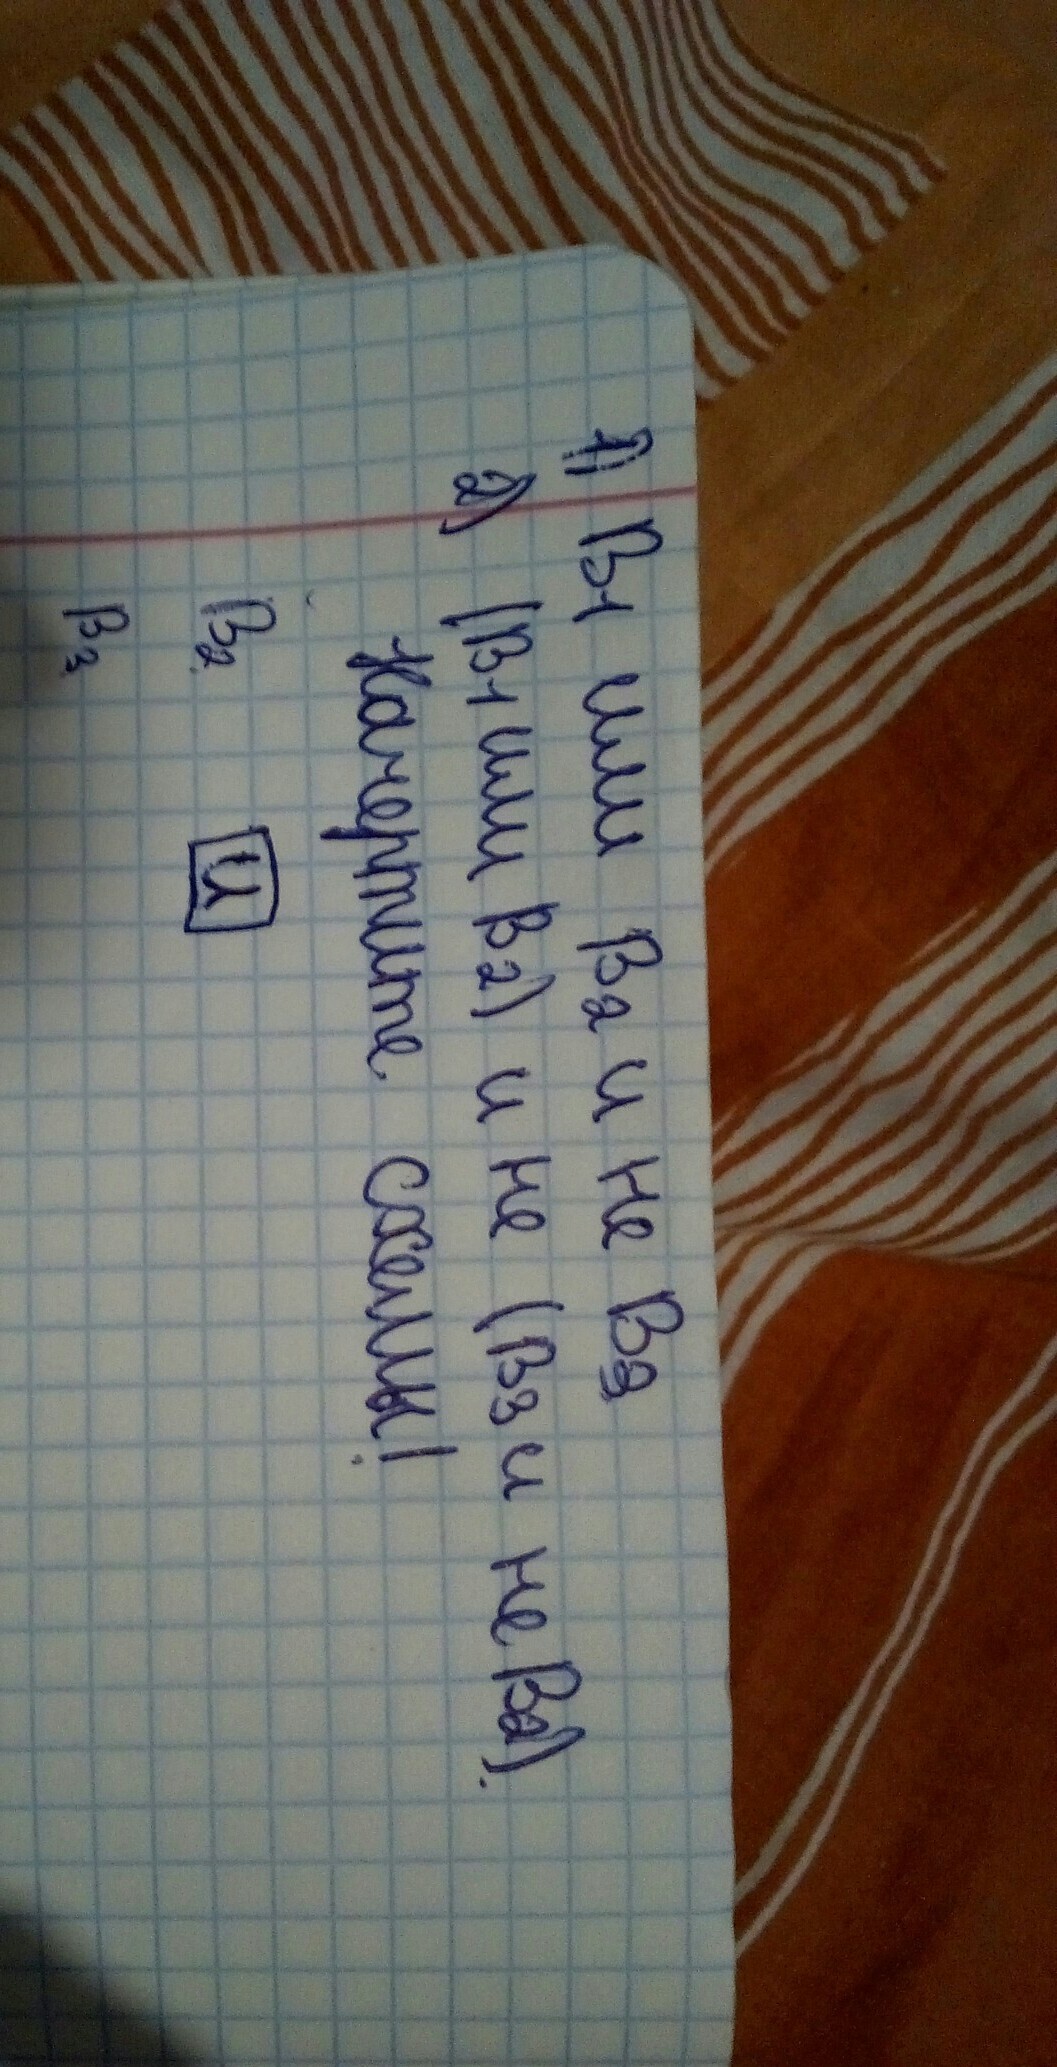 1) В1 или В2 и не В3
2) (В1 или В2) и не (В3 и не В2).
Начертите схемы!
В2 И
В3